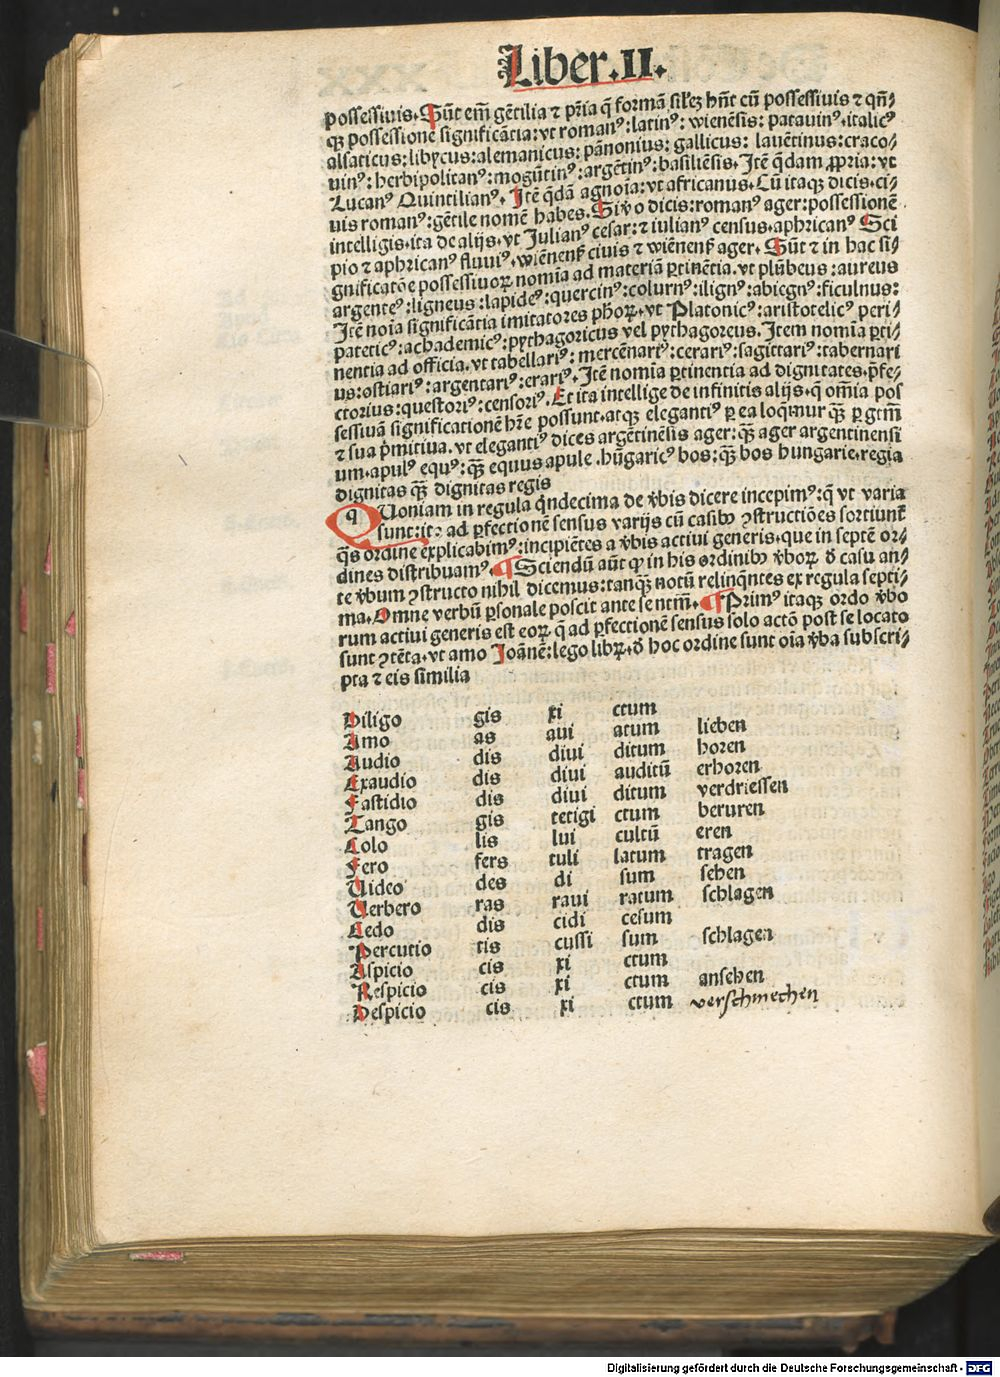 Liber.II.
possessiuis. Sūt em̄ gētilia ⁊ pr̄ia q̄ formā sil'ez hn̄t cū possessiuis ⁊ qn̄⸗
qꝫ possessionē significātia: vt romanꝰ: latinꝰ: wienēsis: patauinꝰ. italicꝰ
alsaticus: libycus: alemanicus: pānonius: gallicus: lauētinus: craco⸗
uinꝰ: herbipolitanꝰ: mogūtinꝰ: argētinꝰ: basiliēsis. Itē q̄dam ꝓpria: vt
Lucanꝰ Quintilianꝰ. Itē q̄dā agnoīa: vt africanus. Cū itaqꝫ dicis. ci⸗
uis romanꝰ: gētile nomē habes. Si v̓o dicis: romanꝰ ager: possessionē
intelligis. ita de alijs. vt Julianꝰ cesar: ⁊ iulianꝰ census. aphricanꝰ Sci
pio ⁊ aphricanꝰ fluuiꝰ. wiēnenſ ciuis ⁊ wiēnenſ ager. Sūt ⁊ in hac si⸗
gnificatōe possessiuoꝝ nomīa ad materiā ꝑtinētia. vt plūbeus: aureus
argenteꝰ: ligneus: lapideꝰ: quercinꝰ: colurnꝰ: ilignꝰ: abiegnꝰ: ficulnus:
Itē noīa significātia imitatores phoꝝ. vt Platonicꝰ: aristotelicꝰ peri⸗
pateticꝰ: achademicꝰ: pythagoricus vel pythagoreus. Item nomīa ꝑti⸗
nentia ad officia. vt tabellariꝰ: mercēnariꝰ: cerariꝰ: sagittariꝰ: tabernari
us: ostiariꝰ: argentariꝰ: erariꝰ. Itē nomīa ꝑtinentia ad dignitates. p̄fe⸗
ctorius: questoriꝰ: censoriꝰ. Et ita intellige de infinitis alijs. q̄ om̄ia pos
sessiuā significationē hr̄e possunt. atqꝫ elegantiꝰ ꝑ ea loq̄mur qꝫ̄ ꝑ gt̄m
⁊ sua p̓mitiua. vt elegantiꝰ dices argētinēsis ager: qꝫ̄ ager argentinensi
um. apulꝰ equꝰ: qꝫ̄ equus apule. hūgaricꝰ bos: qꝫ̄ bos hungarie. regia
dignitas qꝫ̄ dignitas regis
qUoniam in regula q̄ndecima de v̓bis dicere incepimꝰ: q̄ vt varia
sunt: ita ad ꝑfectionē sensus varijs cū casibꝫ ꝯstructiōes sortiunt᷑
q̄s ordine explicabimꝰ: incipiētes a v̓bis actiui generis. que in septē or⸗
dines distribuamꝰ. ¶ Sciendū aūt ꝙ in his ordinibꝫ v̓boꝝ d̓ casu an⸗
te v̓bum ꝯstructo nihil dicemus: tanqꝫ̄ notū relinq̄ntes ex regula septi⸗
ma. Omne verbū ꝑsonale poscit ante se ntm̄. ¶ Primꝰ itaqꝫ ordo v̓bo
rum actiui generis est eoꝝ q̄ ad ꝑfectionē sensus solo actō post se locato
sunt ꝯtēta. vt amo Joānē: lego libꝝ. d̓ hoc ordine sunt oīa v̓ba subscri⸗
pta ⁊ eis similia
Diligo gis xi ctum
Amo as aui atum lieben
Audio dis diui ditum horen
Exaudio dis diui auditū erhoren
Fastidio dis diui ditum verdriessen
Tango gis tetigi ctum beruren
Colo lis lui cultū eren
Fero fers tuli latum tragen
Uideo des di sum sehen
Uerbero ras raui ratum schlagen
Cedo dis cidi cesum
Percutio tis cussi sum schlagen
Aspicio cis xi ctum
Respicio cis xi ctum ansehen
Despicio cis xi ctum verschmechen
Digitalisierung gefördert durch die Deutsche Forschungsgemeinschaft - DFG